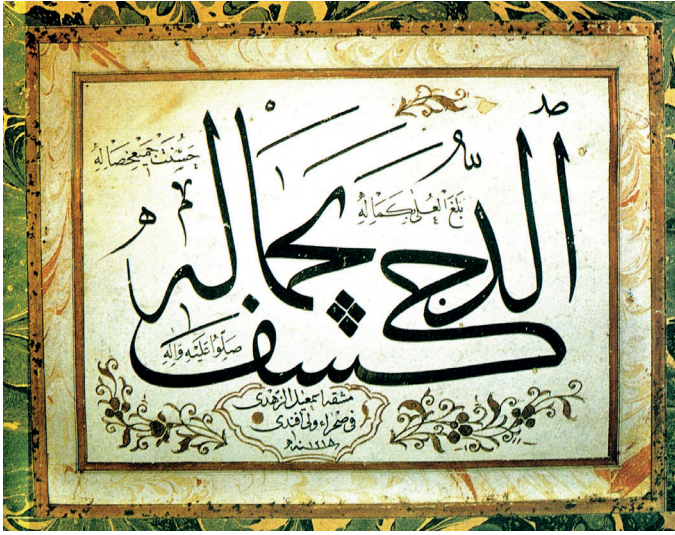 بَلَغَ الْعُلٰى بِكَمَالِهِ
كشف الدجى بجماله
حَسُنَتْ جَمِيعُ خِصَالِهِ
صَلُّوا عَلَيْهِ وَاٰلِهِ
مشقه اسمعيل الزهدى
فى صحراء ولى افندى
سنه ١٢١٨